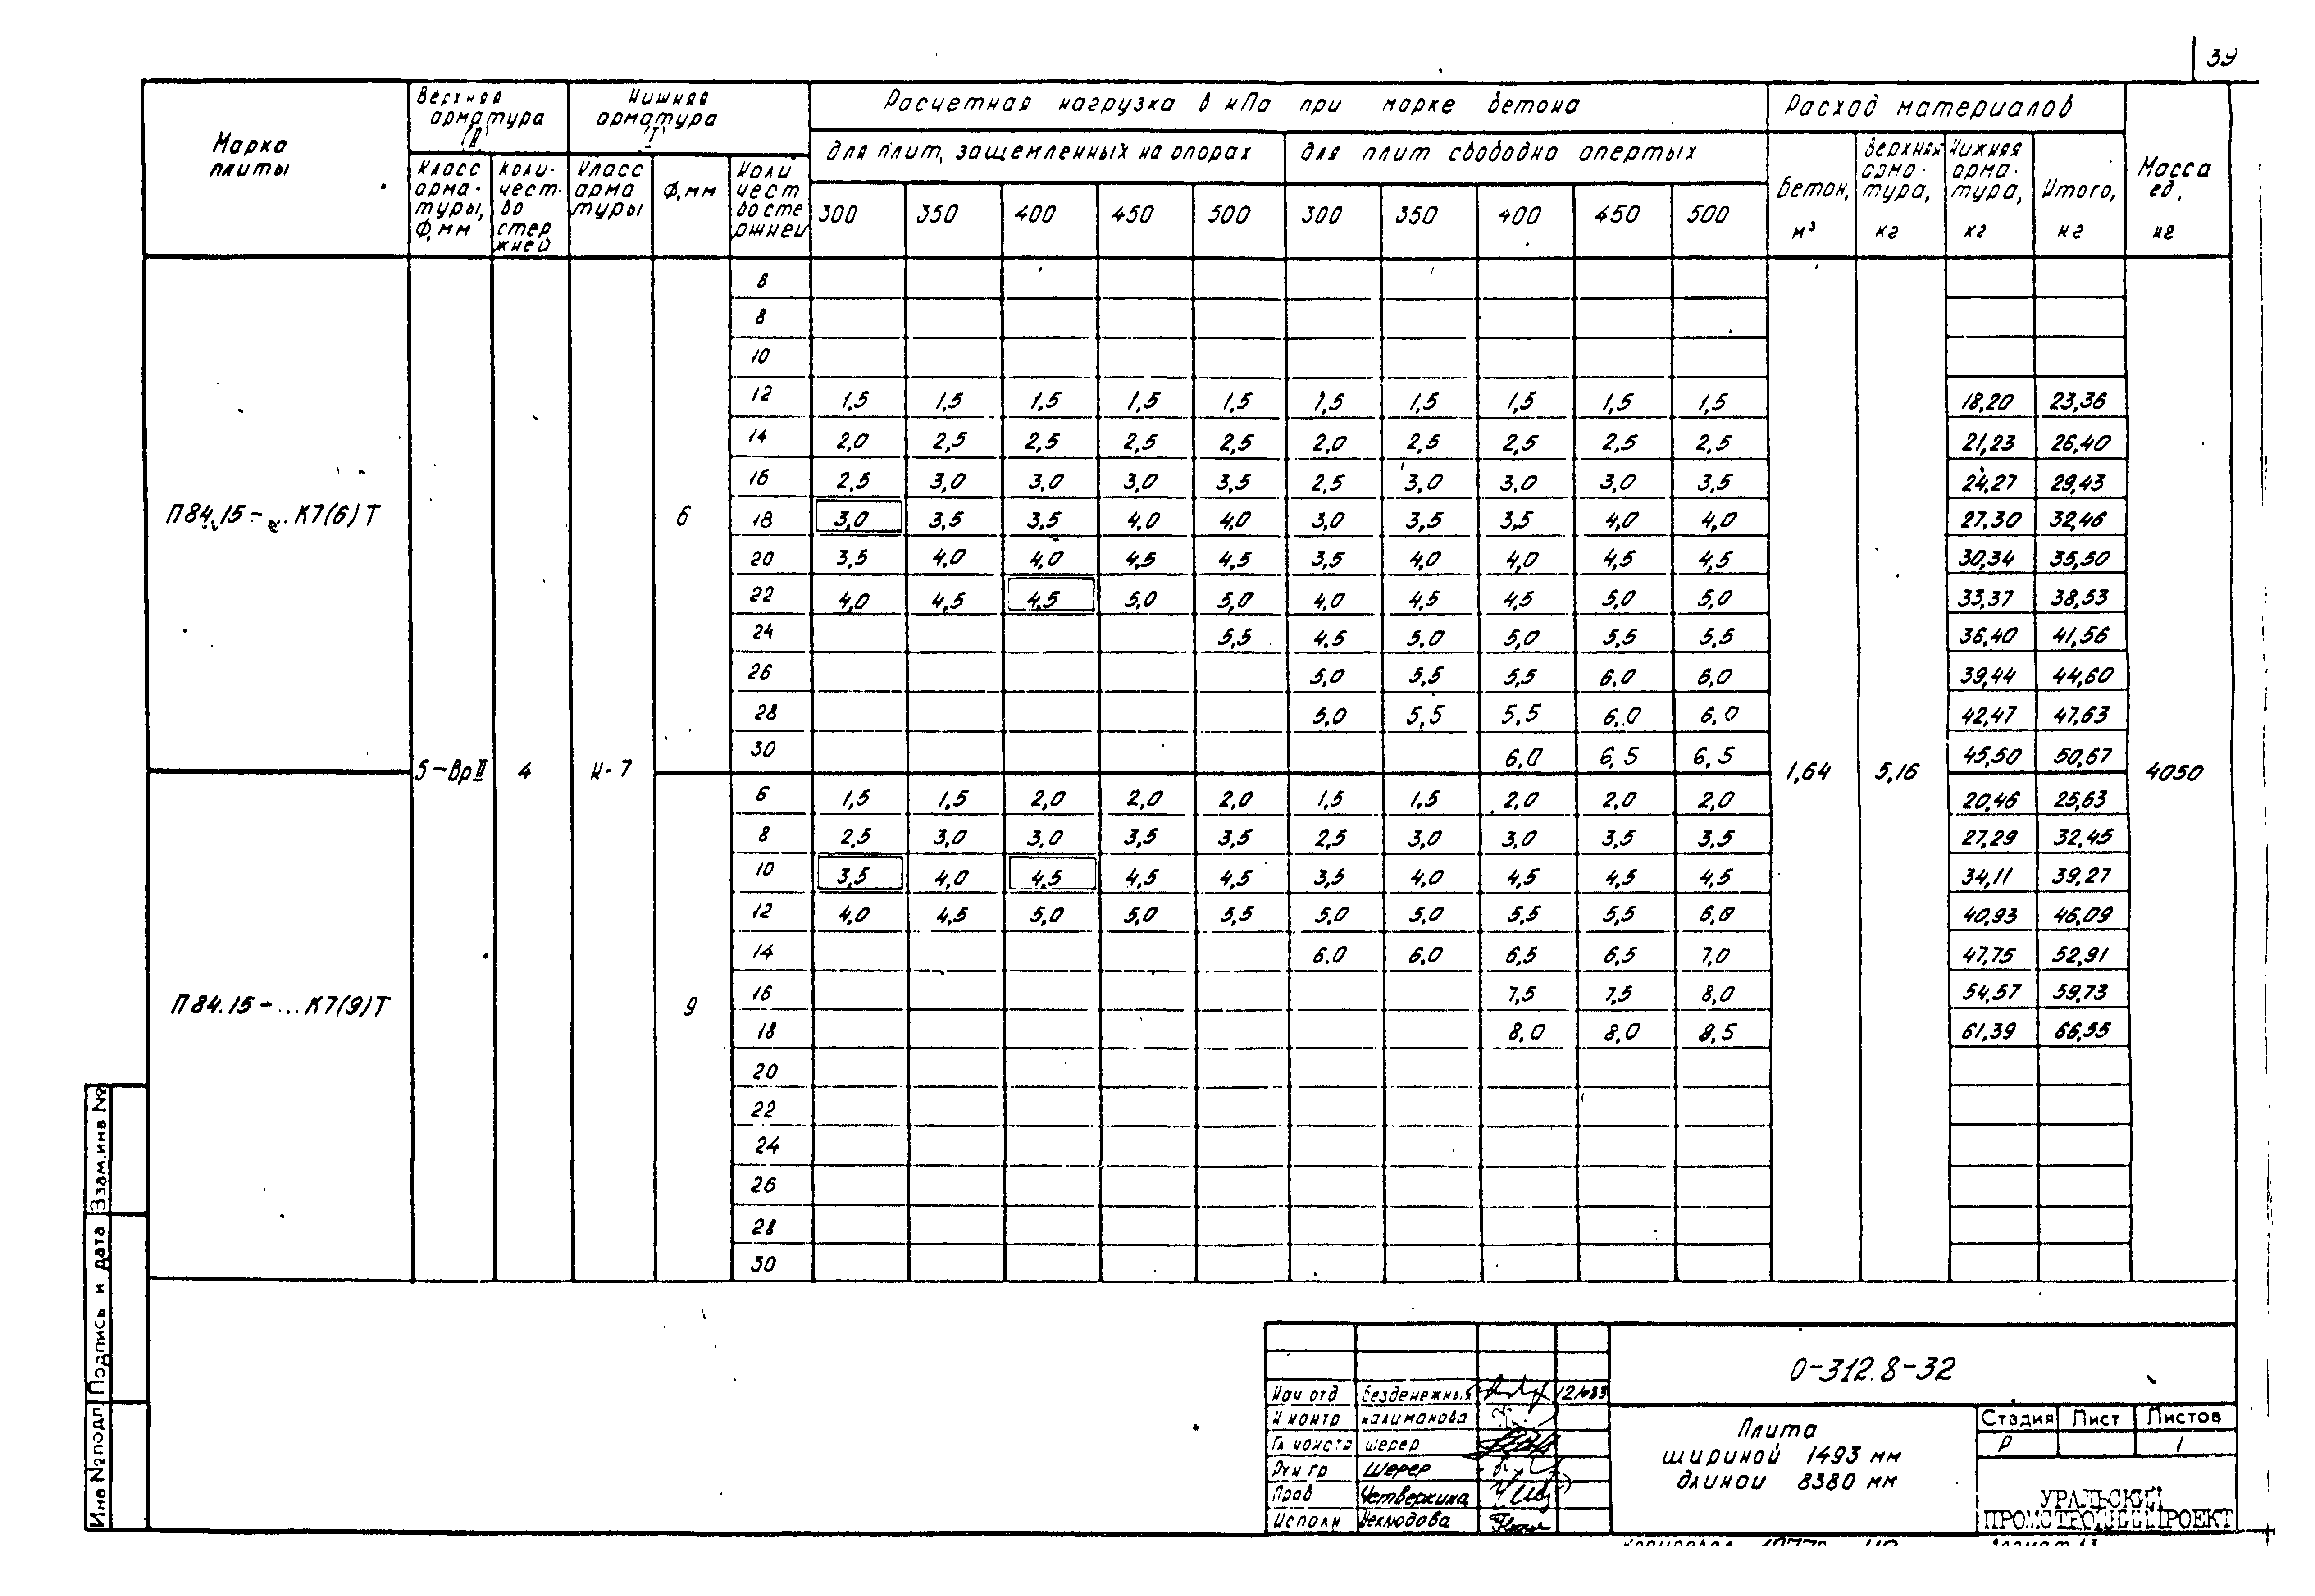 39
Марка плиты
Верхняя арматура (В)
Нижняя арматура
Расчетная нагрузка в кПа при марке бетона
Расход материалов
Масса ед. кг
для плит, защемленных на опорах
для плит свободно опертых
Класс арма-туры, Ф,мм
Коли-чест-во стержней
Класс арматуры
Ф,мм
Количество стержней
300 350 400 450 500 300 350 400 450 500
Бетон, м³
Верхняя арма-тура, кг
Нижняя арма-тура, кг
Итого, кг
6
8
10
12 1,5 1,5 1,5 1,5 1,5 1,5 1,5 1,5 1,5 1,5 18,20 23,36
14 2,0 2,5 2,5 2,5 2,5 2,0 2,5 2,5 2,5 2,5 21,23 26,40
16 2,5 3,0 3,0 3,0 3,5 2,5 3,0 3,0 3,0 3,5 24,27 29,43
П84.15-...К7(6)Т 6 18 3,0 3,5 3,5 4,0 4,0 3,0 3,5 3,5 4,0 4,0 27,30 32,46
20 3,5 4,0 4,0 4,5 4,5 3,5 4,0 4,0 4,5 4,5 30,34 35,50
22 4,0 4,5 4,5 5,0 5,0 4,0 4,5 4,5 5,0 5,0 33,37 38,53
24 5,5 4.5 5.0 5,0 5,5 5,5 36,40 41,56
26 5,0 5,5 5,5 6,0 6,0 39,44 44,60
28 5,0 5,5 5,5 6,0 6,0 42,47 47,63
30 6,0 6,5 6,5 45,50 50,67
5-ВрII 4 К-7 1,64 5,16 4050
6 1,5 1,5 2,0 2,0 2,0 1,5 1,5 2,0 2,0 2,0 20,46 25,63
8 2,5 3,0 3,0 3,5 3,5 2,5 3,0 3,0 3,5 3,5 27,29 32,45
10 3,5 4,0 4,5 4,5 4,5 3,5 4,0 4,5 4,5 4,5 34,11 39,27
12 4,0 4,5 5,0 5,0 5,5 5,0 5,0 5,5 5,5 6,0 40,93 46,09
14 6.0 6,0 6,5 6,5 7,0 47,75 52,91
П84.15-...К7(9)Т 9 16 7,5 7,5 8,0 54,57 59,73
18 8,0 8,0 8,5 61,39 66,55
20
22
24
26
28
30
Инв №подл Подпись и дата Взам.инв №
0-312.8-32
Нач отд Безденежных
Н контр Калиманова
Гл констр Шерер
Рук гр Шерер
Пров Четверкина
Исполн Неклюдова
Плита
шириной 1493 мм
длиной 8380 мм
Стадия Лист Листов
Р 1
УРАЛЬСКИЙ
ПРОМСТРОЙНИИПРОЕКТ